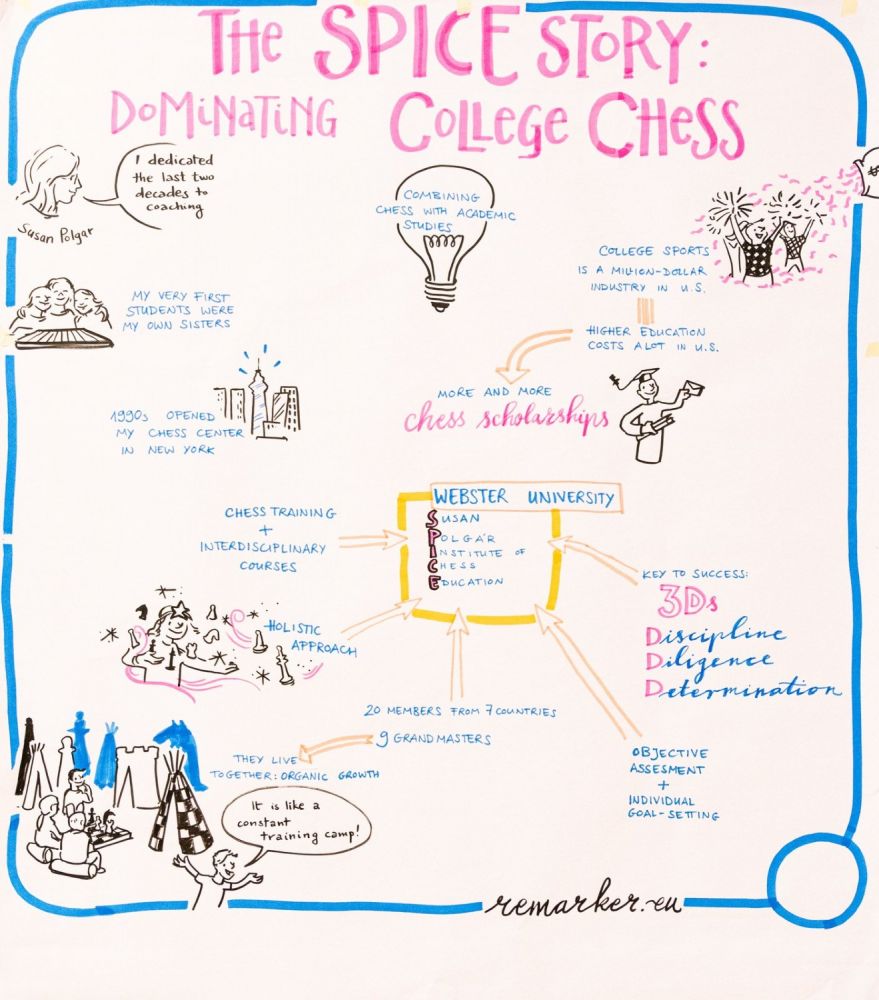 THE SPICE STORY:
DOMINATING COLLEGE CHESS
I dedicated
the last two
decades to
coaching
Susan Polgar
COMBINING
CHESS WITH ACADEMIC
STUDIES
COLLEGE SPORTS
IS A MILLION-DOLLAR
INDUSTRY IN U.S.
MY VERY FIRST
STUDENTS WERE
MY OWN SISTERS
HIGHER EDUCATION
COSTS A LOT IN U.S.
MORE AND MORE
chess scholarships
1990s OPENED
MY CHESS CENTER
IN NEW YORK
WEBSTER UNIVERSITY
SUSAN
POLGÁR
INSTITUTE OF
CHESS
EDUCATION
CHESS TRAINING
+
INTERDISCIPLINARY
COURSES
KEY TO SUCCESS:
3Ds
Discipline
Diligence
Determination
HOLISTIC
APPROACH
20 MEMBERS FROM 7 COUNTRIES
9 GRANDMASTERS
THEY LIVE
TOGETHER: ORGANIC GROWTH
OBJECTIVE
ASSESMENT
+
INDIVIDUAL
GOAL-SETTING
It is like a
constant
training camp!
remarker.eu